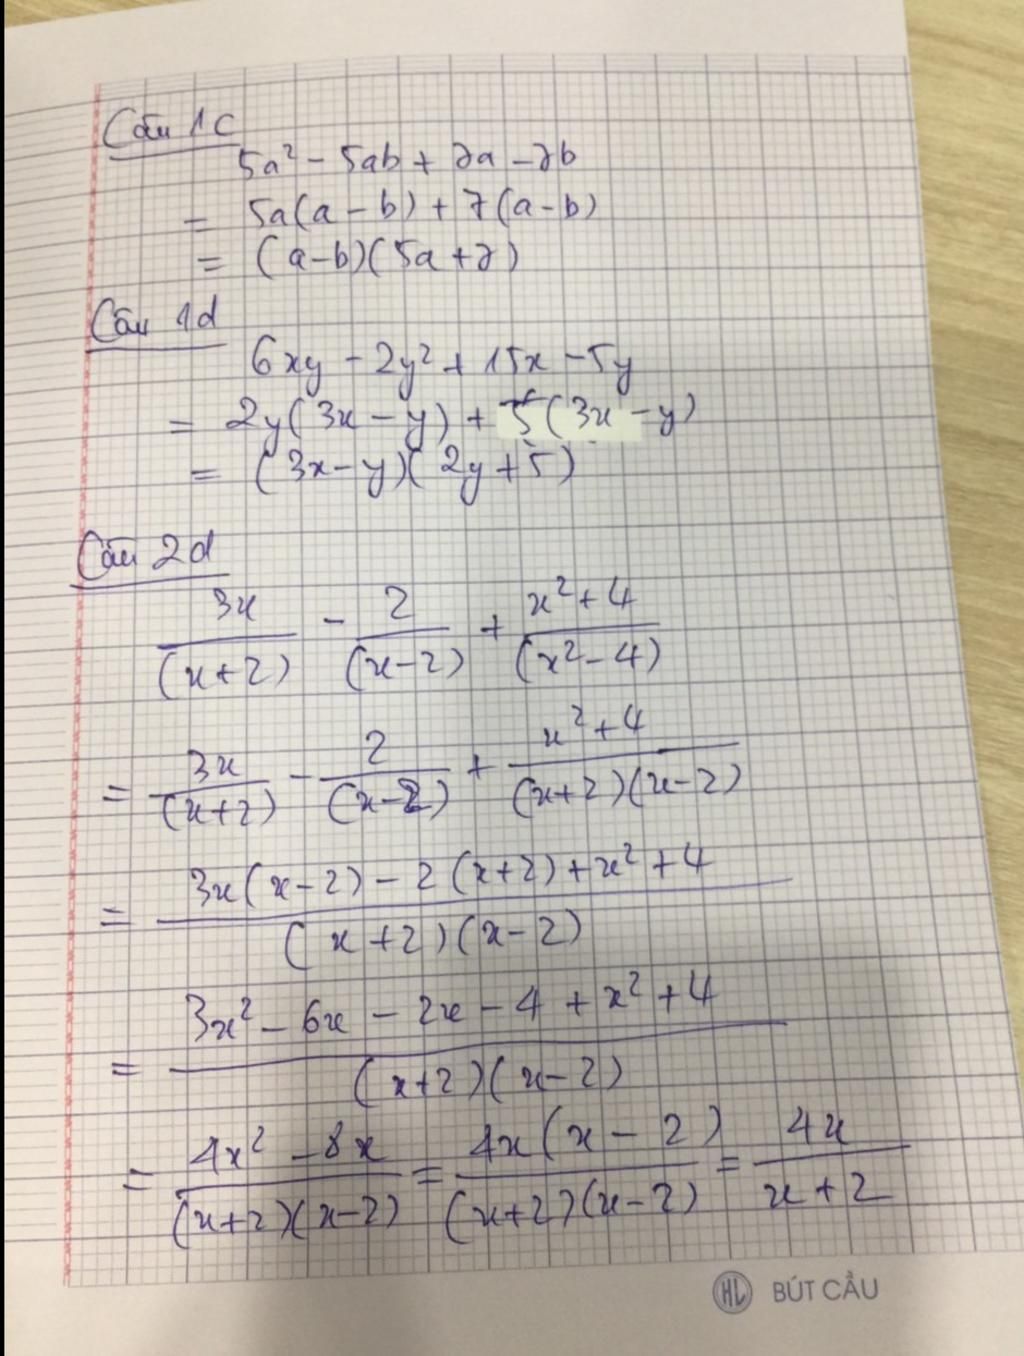 Câu 1c
5a² - 5ab + 7a - 7b
= 5a(a - b) + 7(a - b)
= (a - b)(5a + 7)
Câu 1d
6xy - 2y² + 15x - 5y
= 2y(3x - y) + 5(3x - y)
= (3x - y)(2y + 5)
Câu 2d
3x/(x+2) - 2/(x-2) + x²+4/(x²-4)
= 3x/(x+2) - 2/(x-2) + x²+4/(x+2)(x-2)
= 3x(x-2) - 2(x+2) + x² + 4/(x+2)(x-2)
= 3x² - 6x - 2x - 4 + x² + 4/(x+2)(x-2)
= 4x² - 8x/(x+2)(x-2) = 4x(x-2)/(x+2)(x-2) = 4x/x+2
HL BÚT CẦU